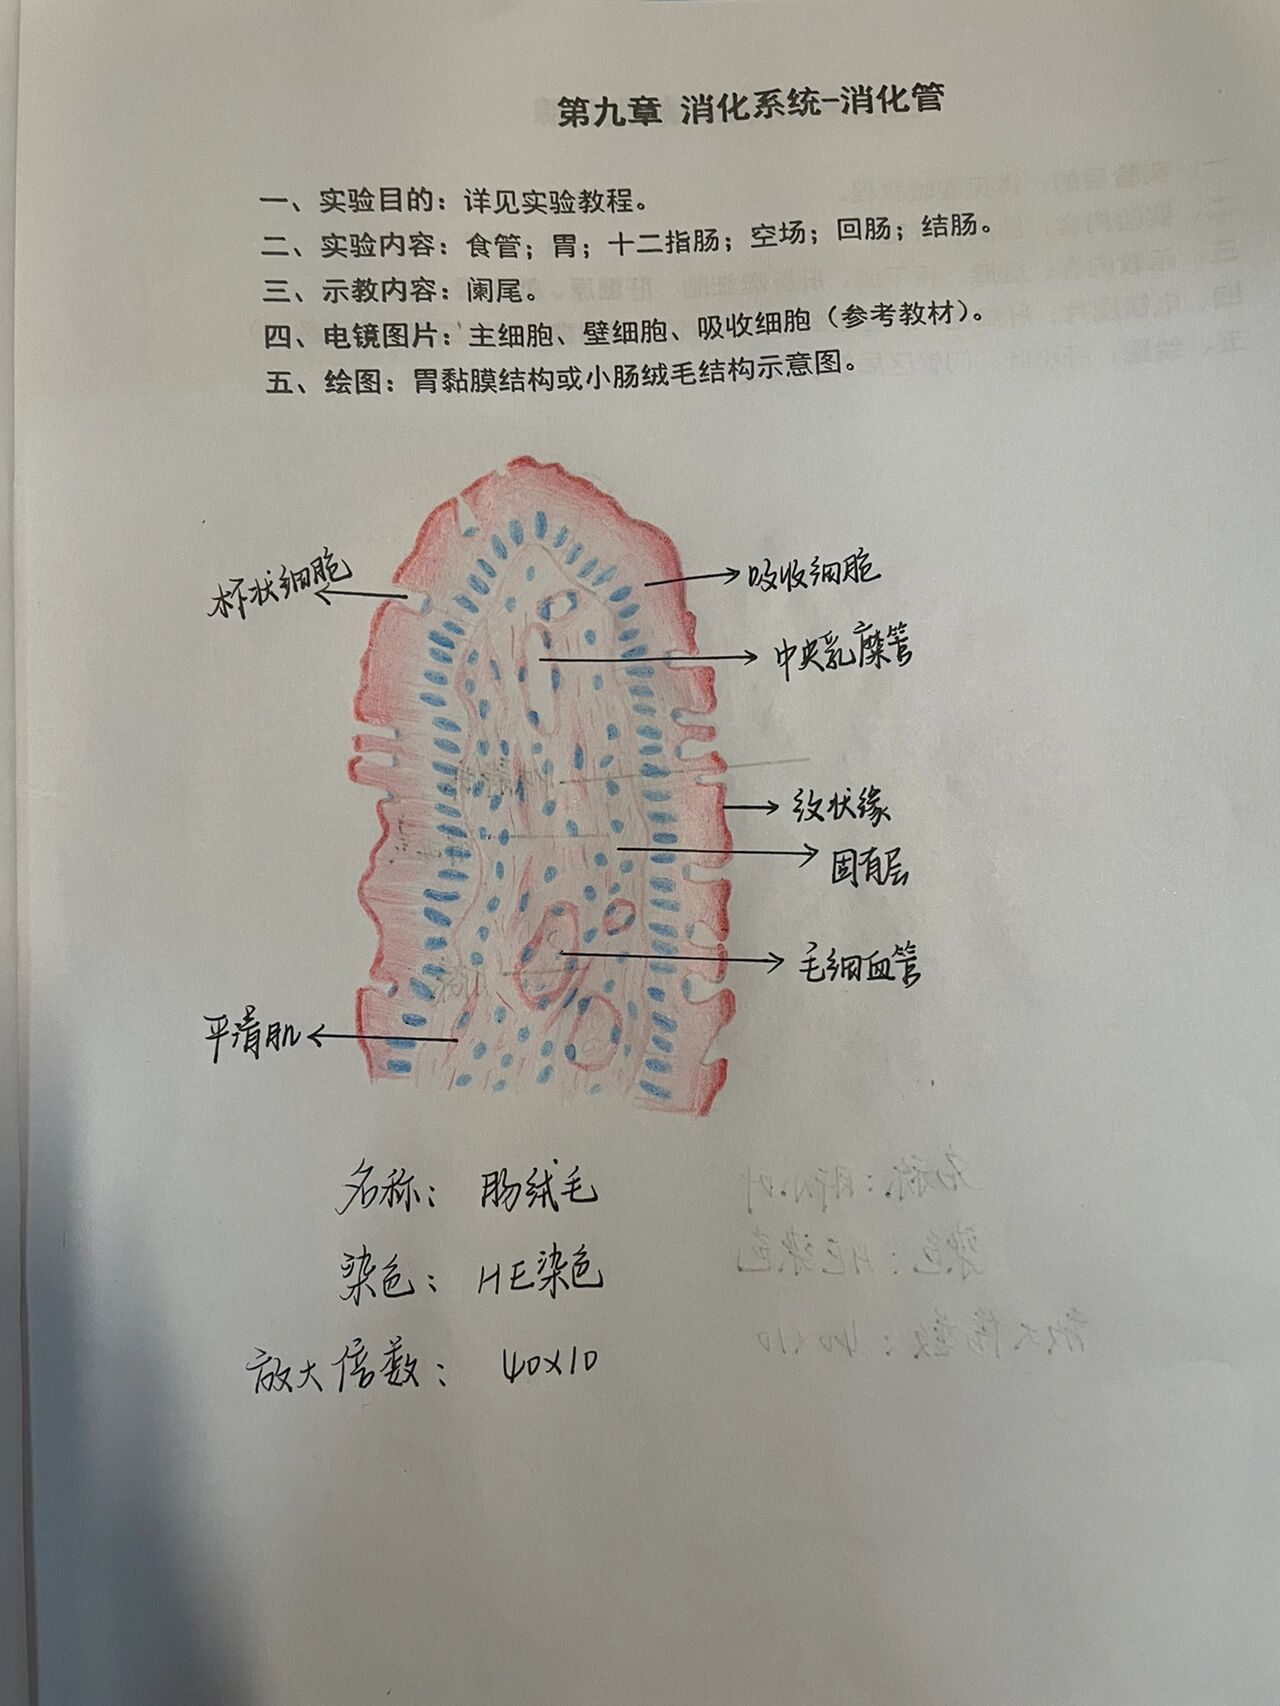 第九章 消化系统-消化管
一、实验目的：详见实验教程。
二、实验内容：食管；胃；十二指肠；空场；回肠；结肠。
三、示教内容：阑尾。
四、电镜图片：主细胞、壁细胞、吸收细胞（参考教材）。
五、绘图：胃黏膜结构或小肠绒毛结构示意图。
杯状细胞
吸收细胞
中央乳糜管
纹状缘
固有层
毛细血管
平滑肌
名称： 肠绒毛
染色： HE染色
放大倍数： 40×10